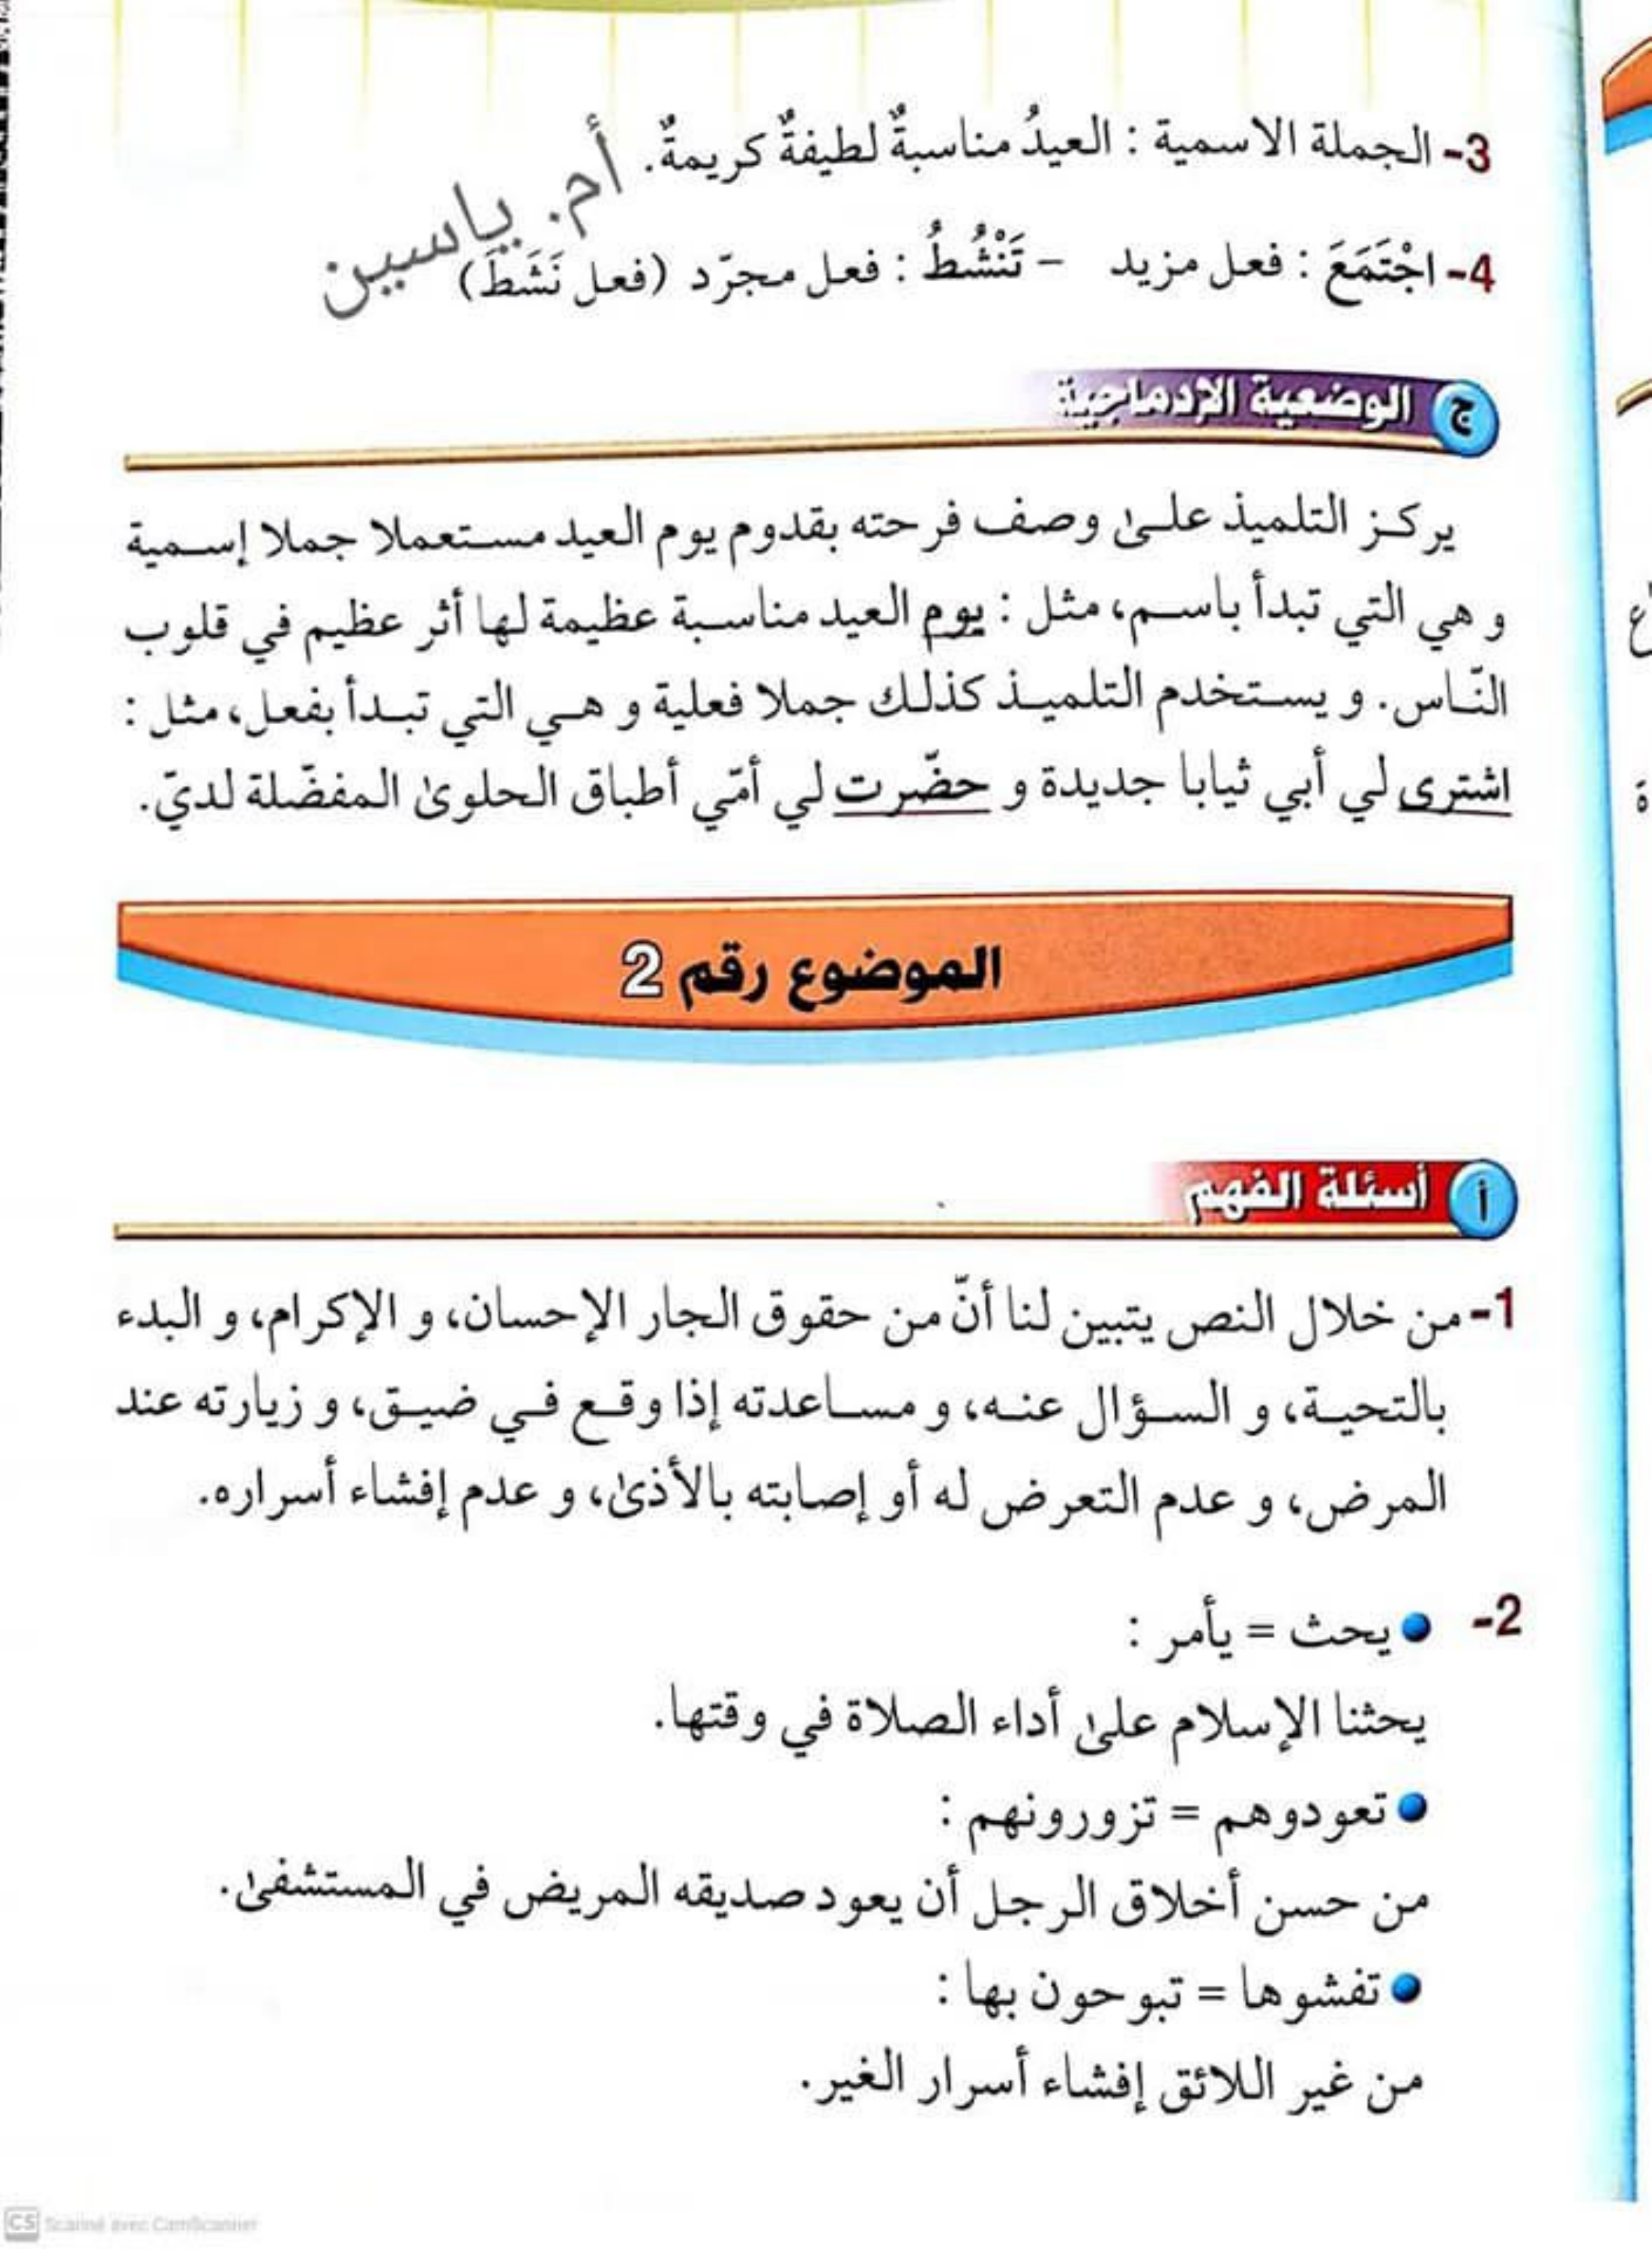 3- الجملة الاسمية : العيدُ مناسبةٌ لطيفةٌ كريمةٌ.
أم. ياسين
4- اجْتَمَعَ : فعل مزيد - تَنْشُطُ : فعل مجرّد (فعل نَشَطَ)
ج الوضعية الإدماجية
يركز التلميذ علىٰ وصف فرحته بقدوم يوم العيد مستعملا جملا إسمية
و هي التي تبدأ باسم، مثل : يوم العيد مناسبة عظيمة لها أثر عظيم في قلوب
النّاس. و يستخدم التلميذ كذلك جملا فعلية و هي التي تبدأ بفعل، مثل :
اشترى لي أبي ثيابا جديدة و حضّرت لي أمّي أطباق الحلوىٰ المفضّلة لديّ.
الموضوع رقم 2
أ أسئلة الفهم
1- من خلال النص يتبين لنا أنّ من حقوق الجار الإحسان، و الإكرام، و البدء
بالتحية، و السؤال عنه، و مساعدته إذا وقع في ضيق، و زيارته عند
المرض، و عدم التعرض له أو إصابته بالأذىٰ، و عدم إفشاء أسراره.
2- • يحث = يأمر :
يحثنا الإسلام علىٰ أداء الصلاة في وقتها.
• تعودوهم = تزورونهم :
من حسن أخلاق الرجل أن يعود صديقه المريض في المستشفىٰ.
• تفشوها = تبوحون بها :
من غير اللائق إفشاء أسرار الغير.
CS Scanné avec CamScanner